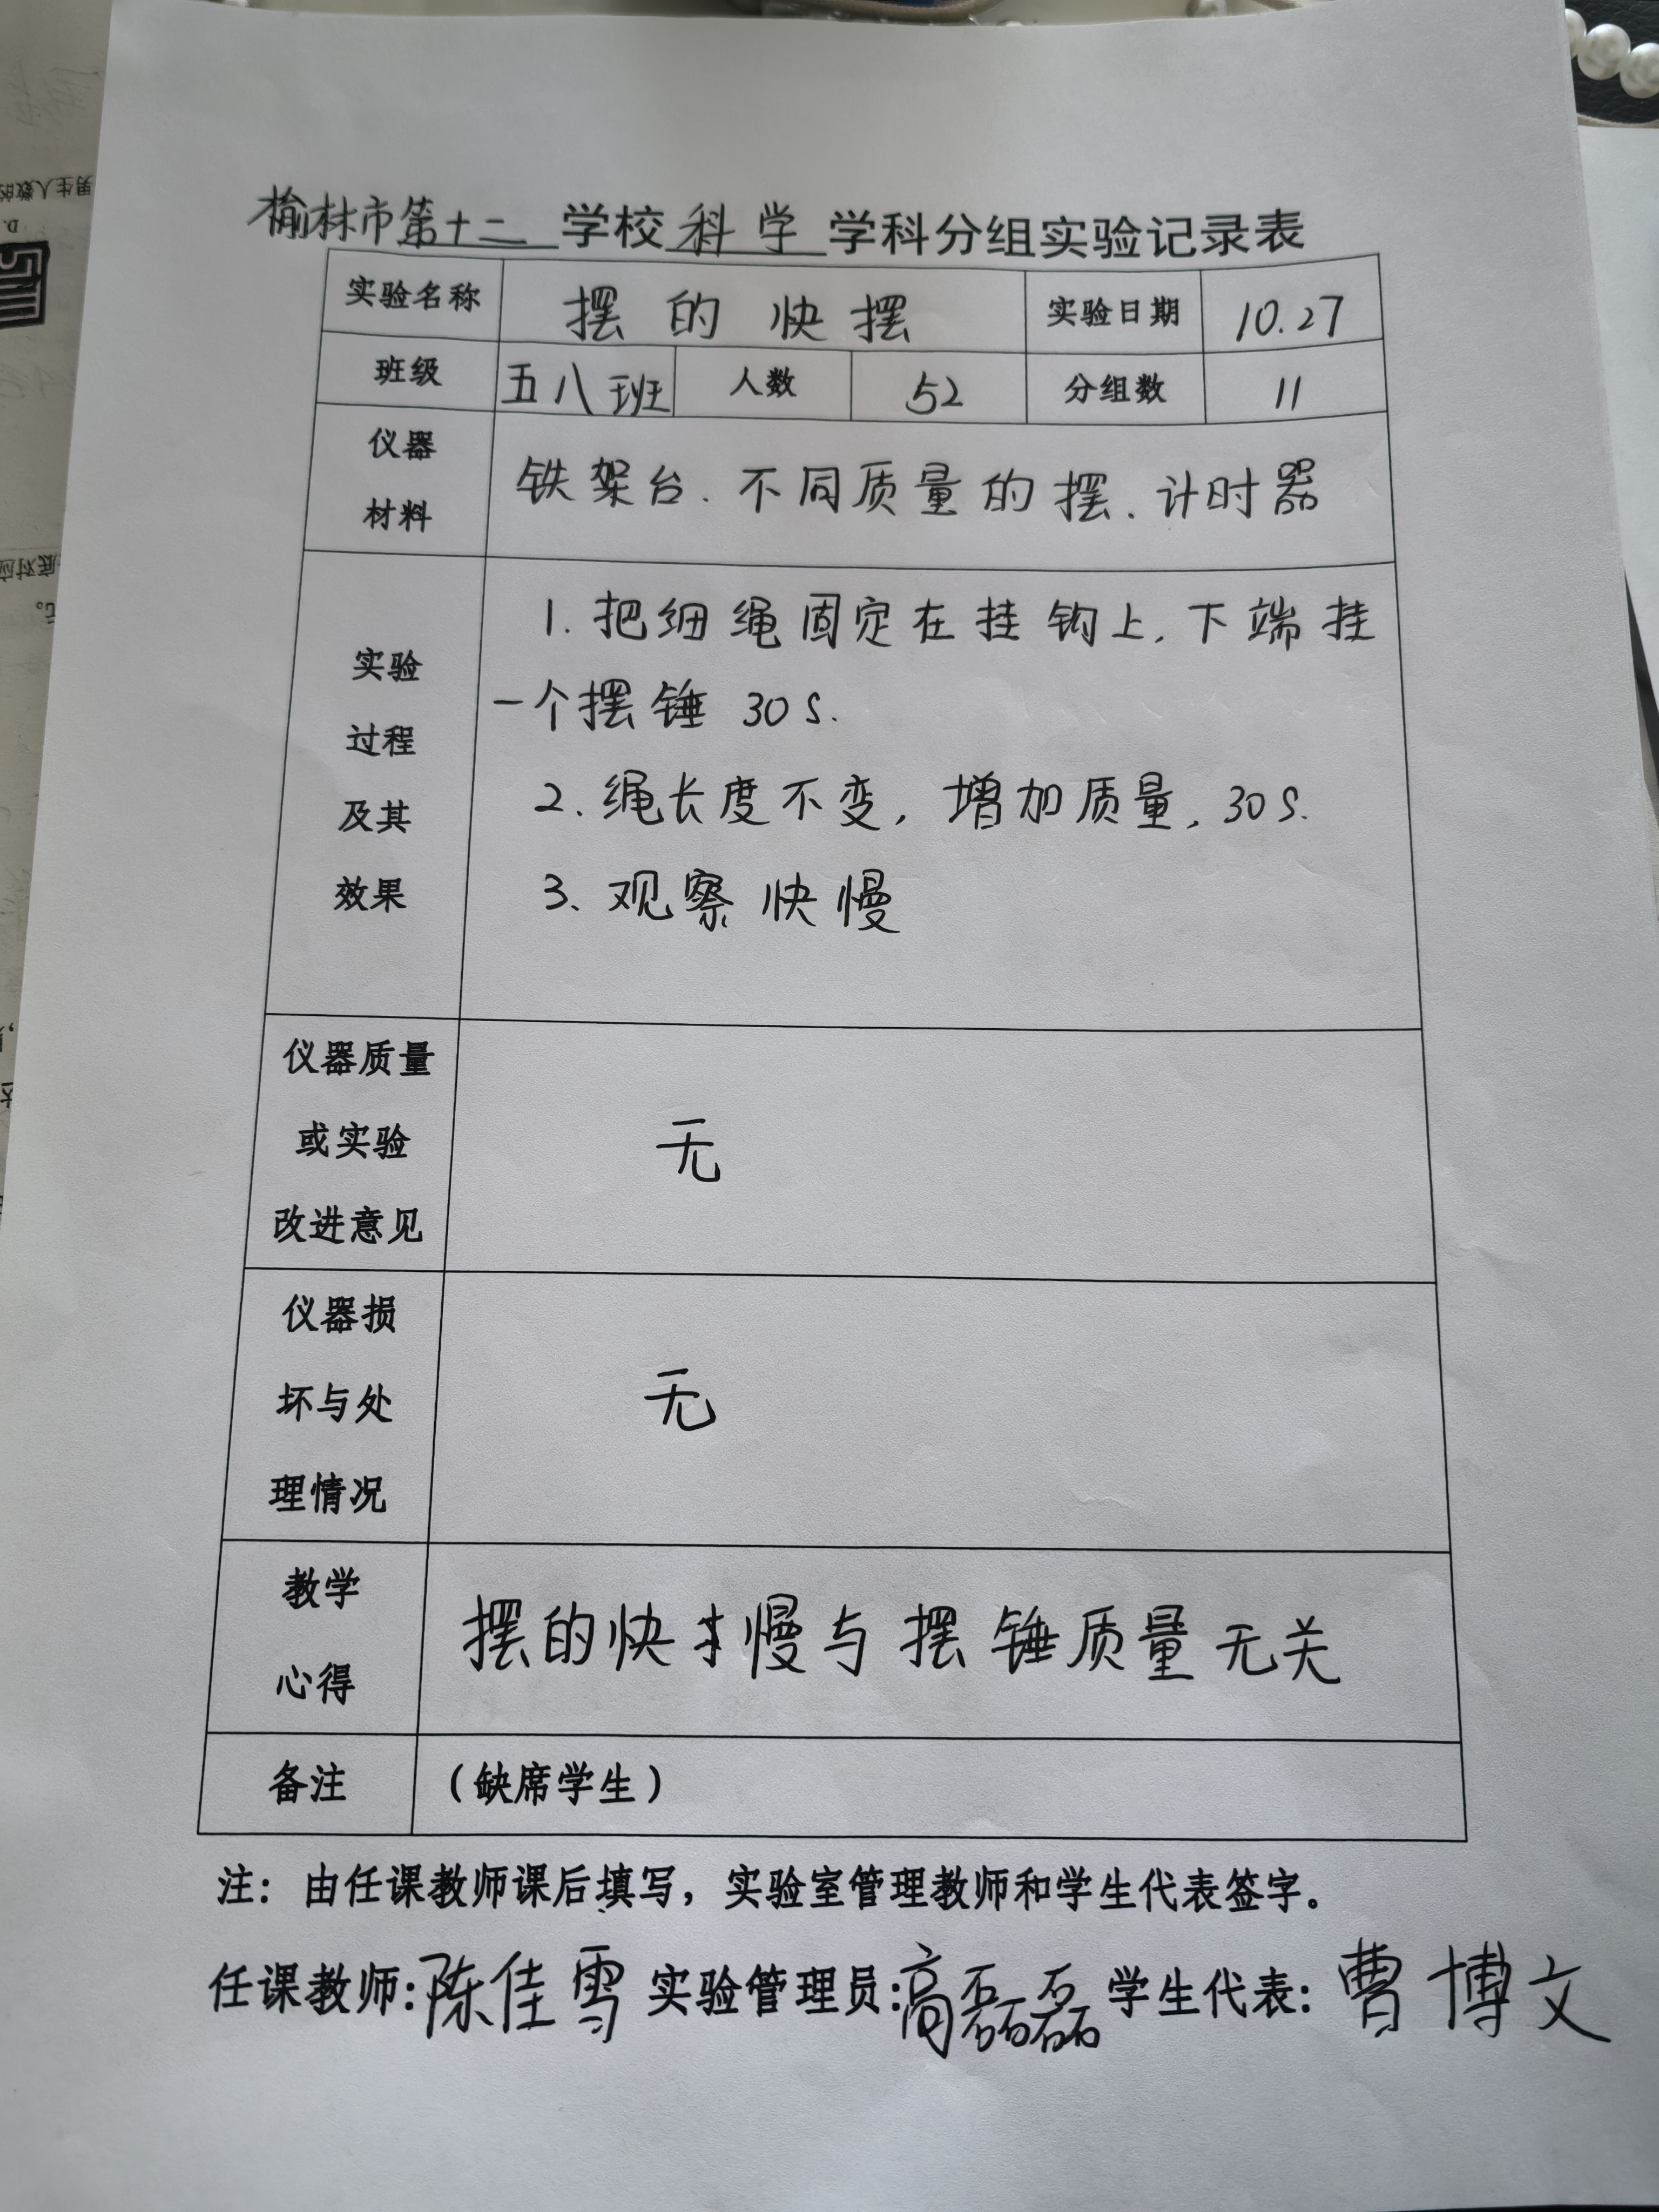 榆林市第十二学校科学学科分组实验记录表
实验名称 摆的快摆 实验日期 10.27
班级 五八班 人数 52 分组数 11
仪器
材料
铁架台、不同质量的摆、计时器
实验
过程
及其
效果
1. 把细绳固定在挂钩上,下端挂
一个摆锤 30S.
2. 绳长度不变,增加质量,30S.
3、观察快慢
仪器质量
或实验
改进意见
无
仪器损
坏与处
理情况
无
教学
心得
摆的快慢与摆锤质量无关
备注 (缺席学生)
注：由任课教师课后填写，实验室管理教师和学生代表签字。
任课教师:陈佳雪 实验管理员:高磊磊 学生代表:曹博文
男生人数的
D.